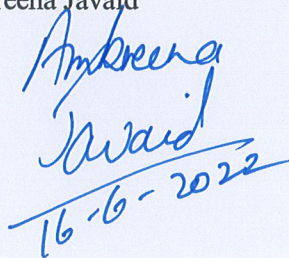 Javaid
Ambreena
Javaid
16-6-2022